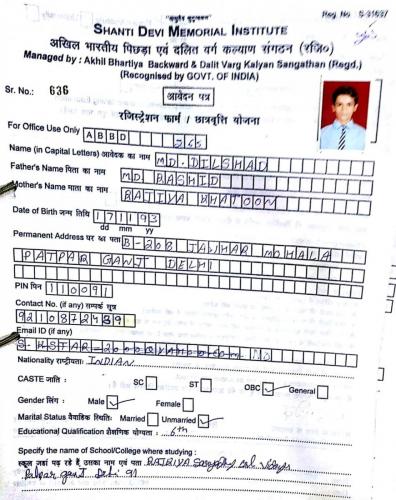 "आयुर्वे शुद्धबल"
Reg. No. S-31637
SHANTI DEVI MEMORIAL INSTITUTE
अखिल भारतीय पिछड़ा एवं दलित वर्ग कल्याण संगठन (रजि०)
Managed by : Akhil Bhartiya Backward & Dalit Varg Kalyan Sangathan (Regd.)
(Recognised by GOVT. OF INDIA)
Sr. No.: 636
आवेदन पत्र
रजिस्ट्रेशन फार्म / छात्रवृत्ति योजना
For Office Use Only ABBD 265
Name (in Capital Letters) आवेदक का नाम MD. DILSHAD
Father's Name पिता का नाम MD. RASHID
Mother's Name माता का नाम RAJIYA KHATOON
Date of Birth जन्म तिथि 171193
dd mm yy
Permanent Address घर का पता B-208 TALIHAR MOHALA
PATPAR GANJ DELHI
PIN पिन 110091
Contact No. (if any) सम्पर्क सूत्र
9210872439
Email ID (if any)
Nationality राष्ट्रीयताः INDIAN
CASTE जाति : SC ST OBC General
Gender लिंग : Male Female
Marital Status वैवाहिक स्थितिः Married Unmarried
Educational Qualification शैक्षणिक योग्यता : 6th
Specify the name of School/College where studying :
स्कूल जहां पढ़ रहे है उसका नाम एवं पता
Patpar ganj Delhi 91